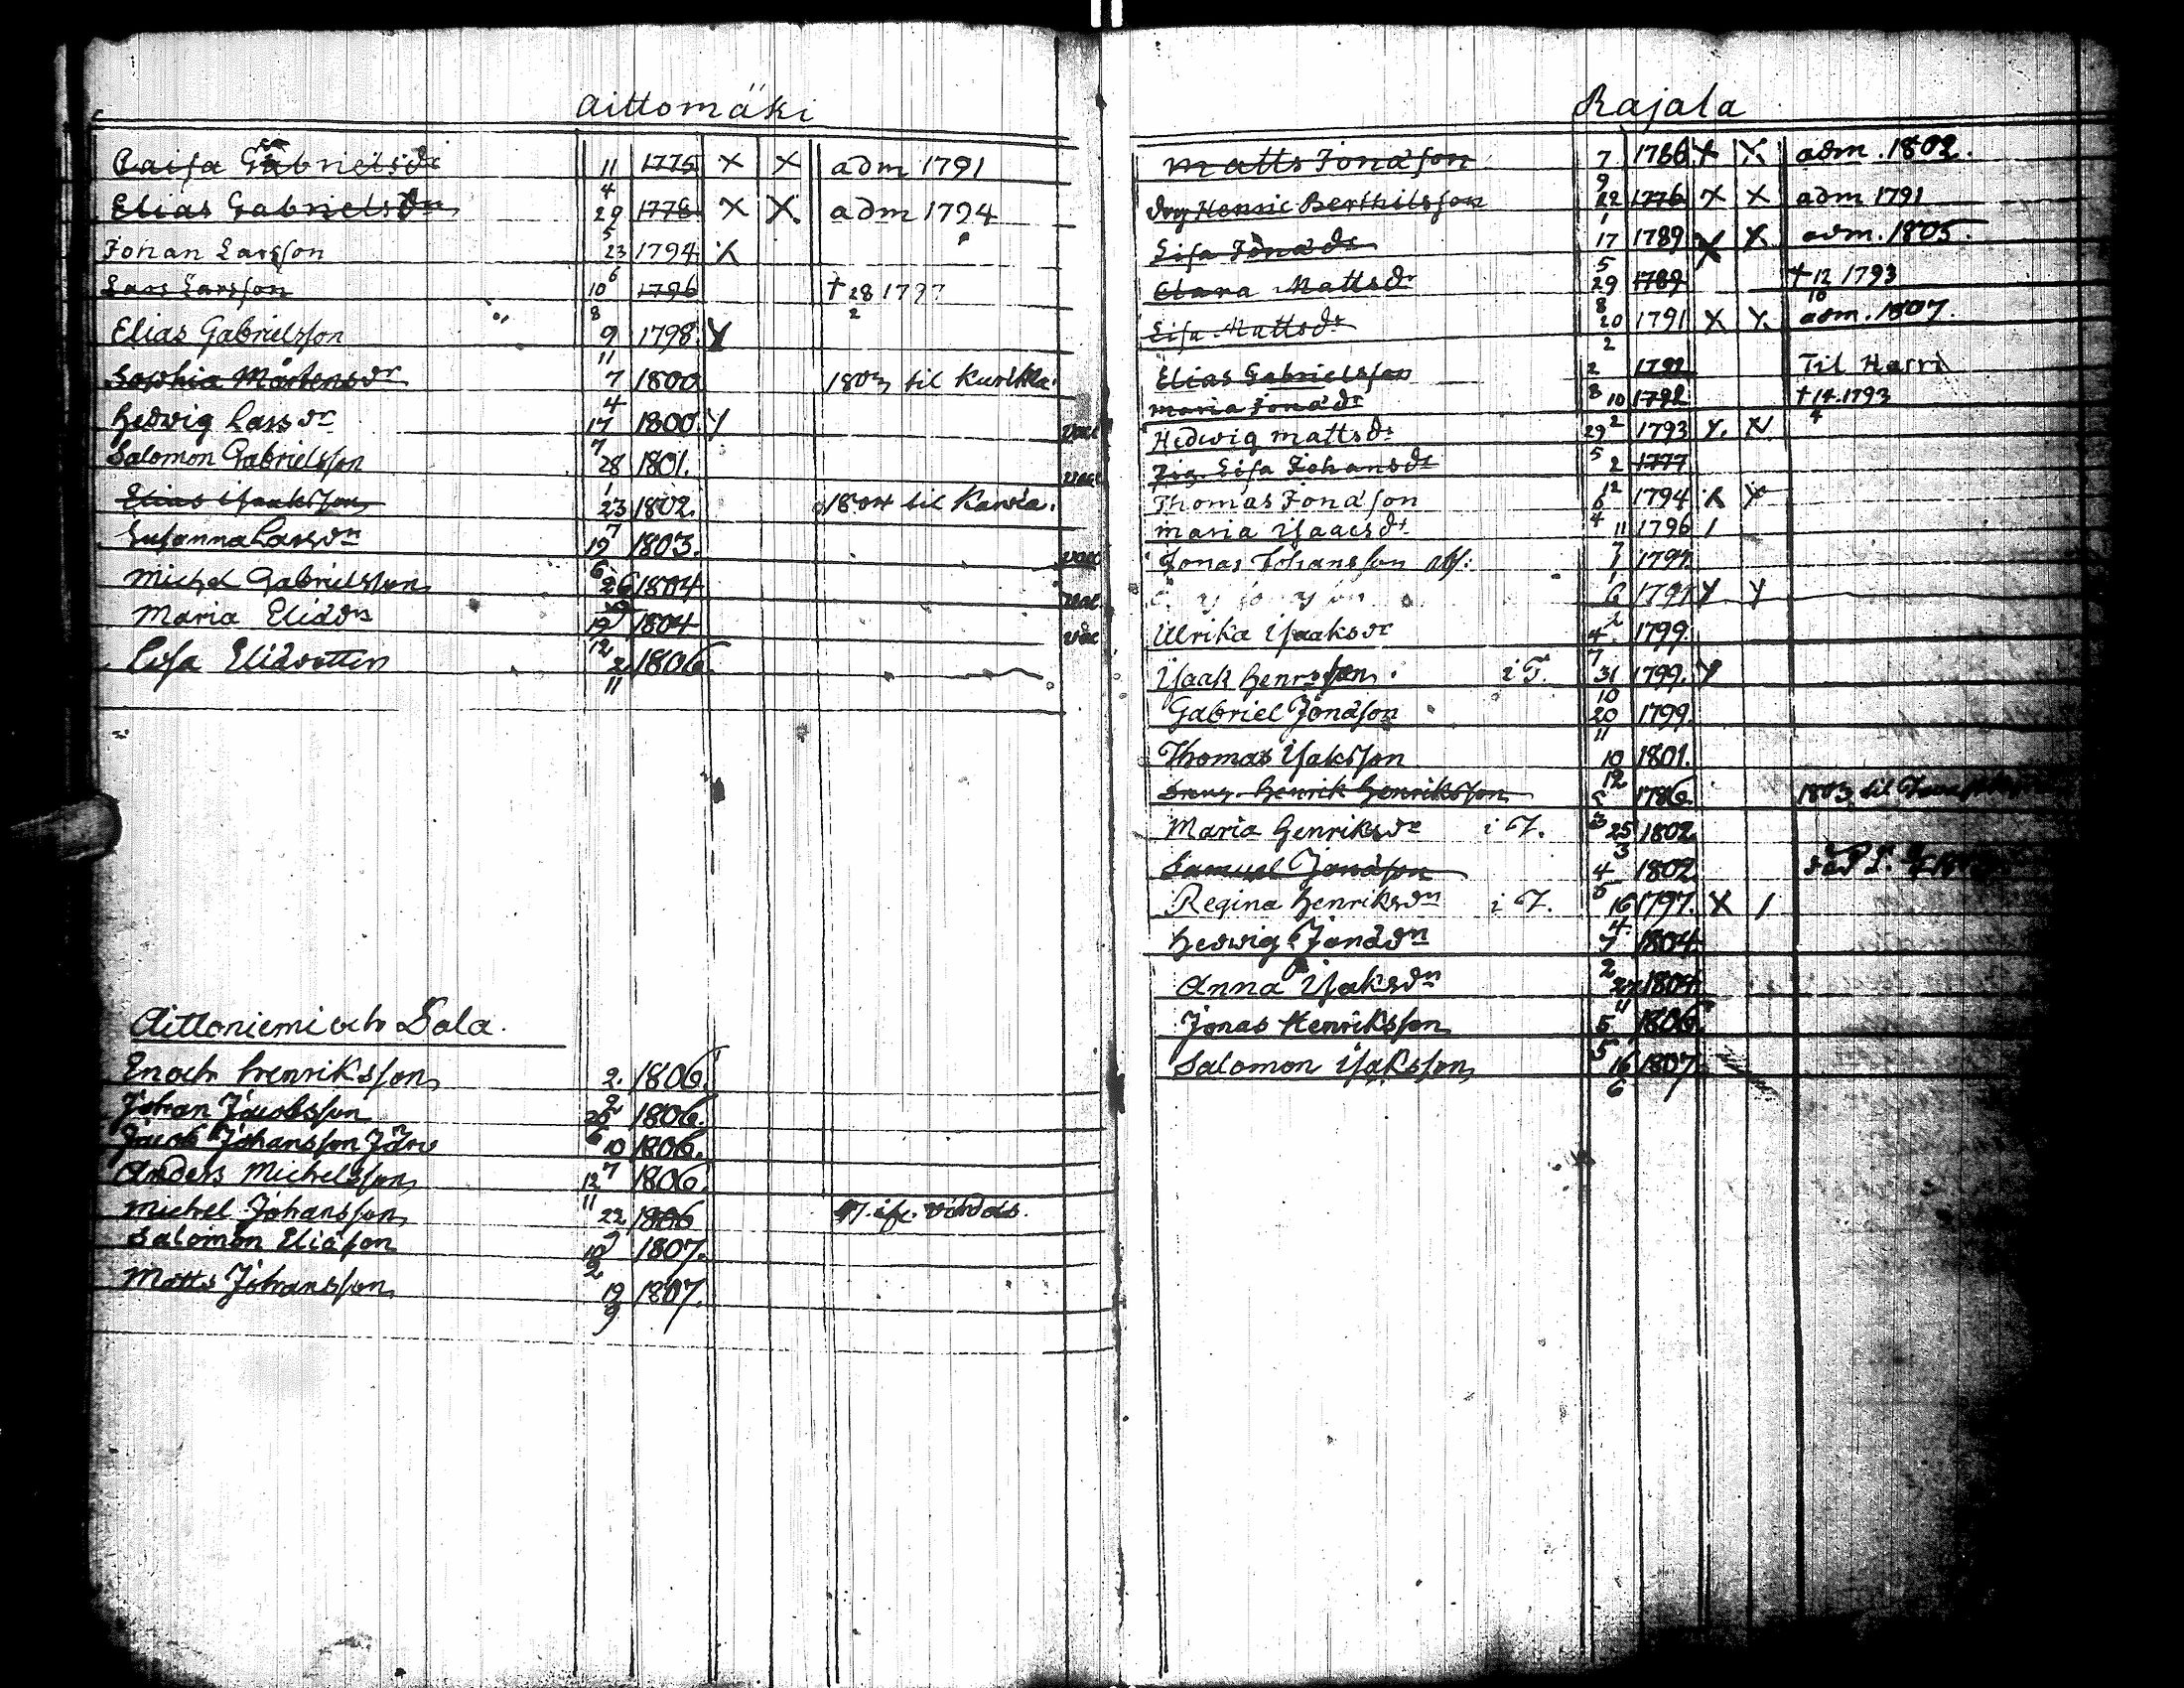 Aittomäki
Caisa Gabrielsdr 11/4 1775 X X adm 1791
Elias Gabrielsdn 29/5 1778 X X. adm 1794
Johan Larsson 23/6 1794 X
Lars Larsson 10/8 1796 † 28/2 179
Elias Gabrielsson 9/11 1798 Y
Sophia Mårtensdr 7/4 1800 1803 til Kurikka.
Hedvig Larsdr 17/7 1800 Y vac
Salomon Gabrielsson 28/1 1801. vac
Elias Isaaksson 23/7 1802. 1804 til Karvia.
Susanna Larsdn 19/6 1803. vac
Michel Gabrielsson 26 1804 vac
Maria Eliædn 19/12 1804 vac
Lisa Elidotten 2/11 1806.
Aittoniemi och Sala.
Enoch Henriksson 2/9 1806.
Johan Jacobsson 20/6 1806.
Jacob Johansson Järv 10/7 1806.
Anders Michelsson 12/11 1806.
Michel Johansson 22/9 1806
Salomon Eliæson 10/2 1807.
Matts Johansson 19/9 1807.
Rajala
Matts Jonæson 7/9 1786 X X. adm. 1802.
drg Henric Berthilsson 22/1 1776 X X adm 1791
Lisa Jonædr 17/5 1789 X X. adm. 1805.
Clara Mattsdr 29/8 1789 † 12/10 1793
Lisa Mattsdr 20/2 1791 X Y. adm. 1807.
Elias Gabrielsson 2/8 1792 Til Harri
Maria Jonædr 10/2 1792 † 14/4 1793
Hedwig Mattsdr 29/5 1793 Y. X
Pig. Lisa Johansdr 2/12 1777
Thomas Jonæson 6/4 1794 X Y
Maria Isaacsdr 11/7 1796 /
Jonas Johansson 1797.
6 1797 Y Y
Ulrika Isaaksdr 4/7 1799.
Isaak Henrsson. i T. 31/10 1799. Y
Gabriel Jonæson 20/11 1799.
Thomas Isaksson 10/12 1801.
Dreng. Henrik Henriksson 5/3 1786 1803 til
Maria Henriksdr i T. 25/3 1802.
Samuel Jonæson 4/5 1802.
Regina Henriksdn i T. 16/4 1797. X /
Hedvig Jonædn 7/2 1804
Anna Isaksdn 27/11 1804
Jonas Henriksson 5/5 1806.
Salomon Isaksson 16/6 1807